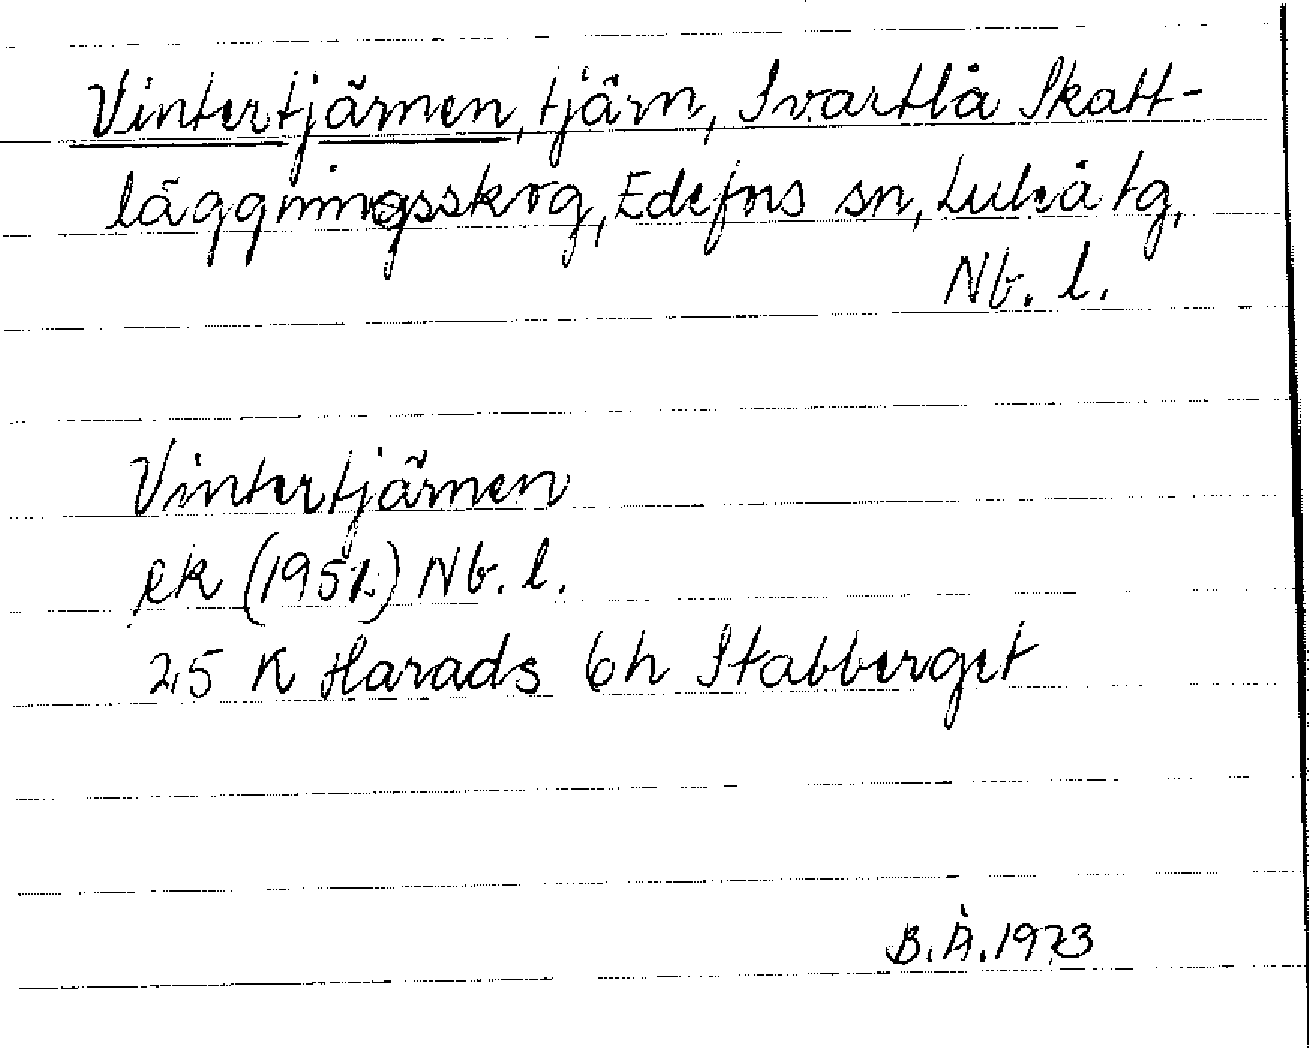 Vintertjärnen, tjärn, Svartlå Skatt-
läggningsskog, Edefors sn, Luleå tg,
Nb. l.
Vintertjärnen
ek (1951) Nb. l.
25 K Harads 6h Stabberget
B.Å.1973